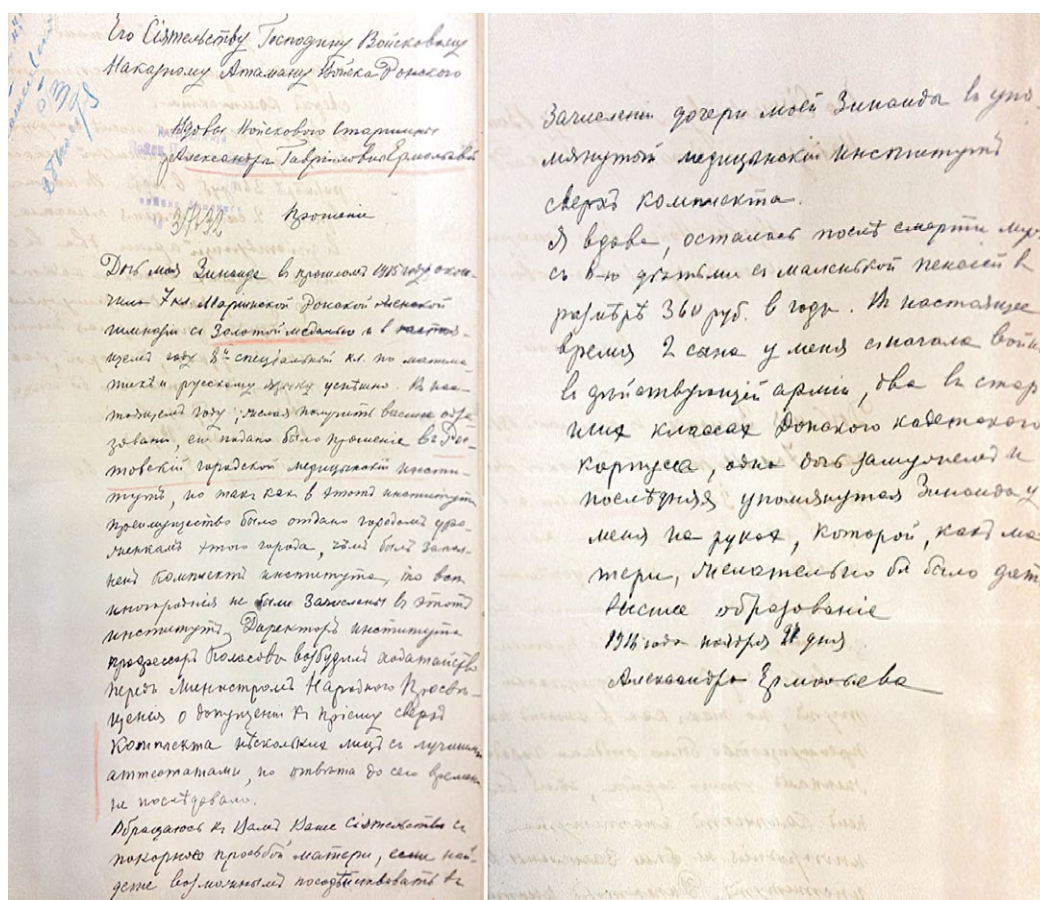 Его Сіятельству Господину Войсковому
Наказному Атаману Войска Донского
Вдовы Войскового Старшины
Александры Гавриловны Ермольевой
Прошеніе
Дочь моя Зинаида в прошломъ 1915 году окон-
чила 7 кл. Маріинской Донской женской
гимназіи съ Золотой медалью и в настоя-
щемъ году 8й спеціальный кл. по матема
тикѣ и русскому языку успешно. В нас-
тоящемъ году, желая получить высшее обра-
зованіе, ею подано было прошеніе в Рос-
товскій городской медицинскій инсти-
тутъ, но такъ какъ в этотъ институтъ
преимущество было отдано городомъ уро-
женкамъ этого города, чѣмъ былъ запол-
ненъ комплектъ института, то все
иногороднія не были зачислены в этотъ
институтъ. Директоръ института
профессоръ Колосовъ возбудилъ ходатайство
передъ Министромъ Народнаго Просвѣ-
щенія о допущеніи къ пріему сверхъ
комплекта нѣсколькихъ лицъ съ лучшими
аттестатами, но отвѣта до сего времени
не послѣдовало.
Обращаюсь къ Вамъ Ваше Сіятельство съ
покорною просьбой матери, если най-
дете возможнымъ посодѣйствовать въ
зачисленіи дочери моей Зинаиды въ упо-
мянутый медицинскій институтъ
сверхъ комплекта.
Я вдова, осталась послѣ смерти мужа
съ 8-ю дѣтьми съ маленькой пенсіей в
размѣрѣ 360 руб. в годъ. В настоящее
время 2 сына у меня с начала войны
в дѣйствующей арміи, два въ стар
шихъ классахъ Донского кадетского
корпуса, одна дочь замужемъ и
послѣдняя упомянутая Зинаида у
меня на рукахъ, которой, какъ ма-
тери, желательно бы было дать
высшее образованіе
1916 года ноября дня
Александра Ермольева